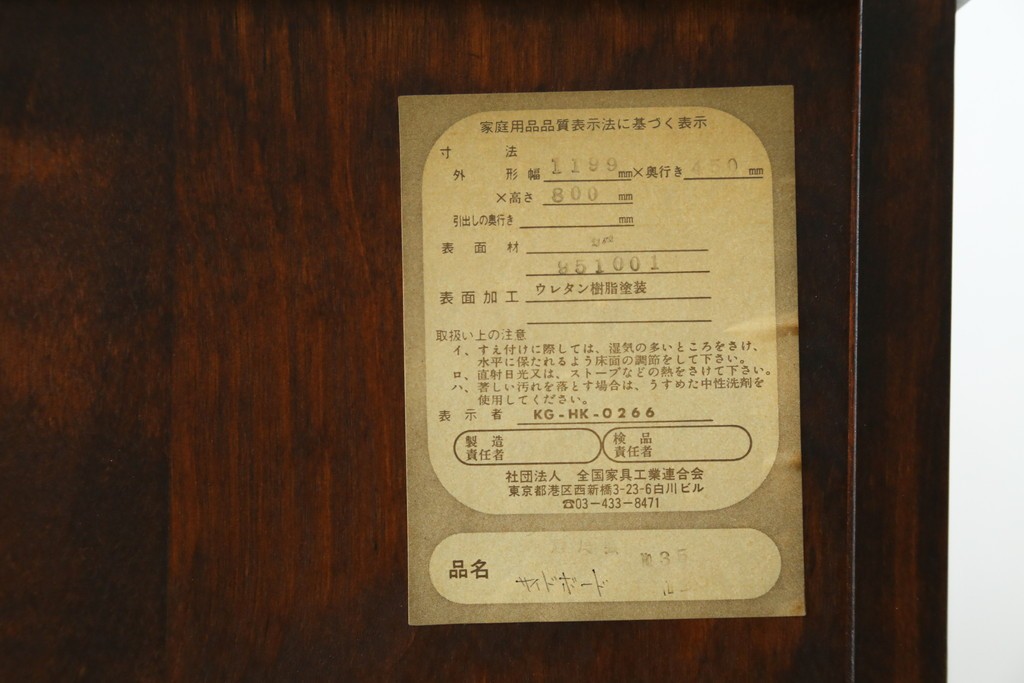 家庭用品品質表示法に基づく表示
寸法
外形幅 1199 mm×奥行き 450 mm
×高さ 800 mm
引出しの奥行き mm
表面材
951001
表面加工 ウレタン樹脂塗装
取扱い上の注意
イ、すえ付けに際しては、湿気の多いところをさけ、
水平に保たれるよう床面の調節をして下さい。
ロ、直射日光又は、ストーブなどの熱をさけて下さい。
ハ、著しい汚れを落とす場合は、うすめた中性洗剤を
使用してください。
表示者 KG-HK-0266
製造責任者 検品責任者
社団法人 全国家具工業連合会
東京都港区西新橋3-23-6白川ビル
☎03-433-8471
品名 35